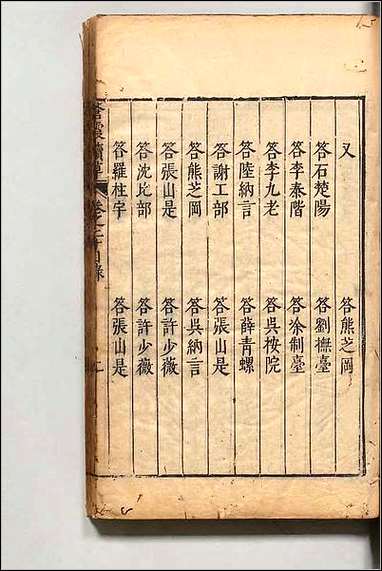 又　答熊芝岡
答石楚陽　答劉撫臺
答李泰階　答涂制臺
答李九老　答吳按院
答陸納言　答薛青螺
答謝工部　答張山是
答熊芝岡　答吳納言
答張山是　答許少薇
答沈比部　答許少薇
答羅柱宇　答張山是
蒼霞續草　卷之二十目錄